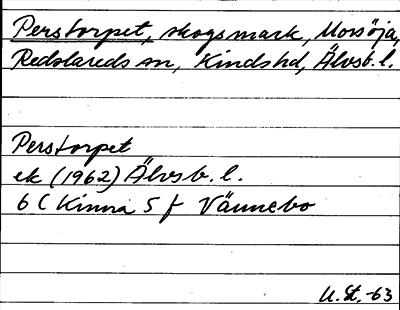 Perstorpet, skogsmark, Morsöja,
Redslareds sn, Kinds hd, Älvsb. l.
Perstorpet
ek (1962) Älvsb. l.
6 C Kinna 5 f Vännebo
U. St. -63